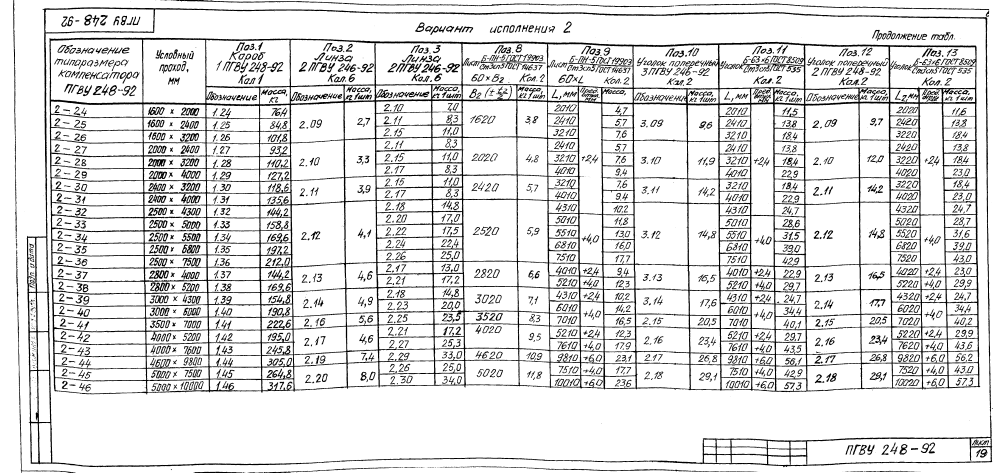 ПГВУ 248-92
Вариант исполнения 2
Продолжение табл.
Обозначение типоразмера компенсатора ПГВУ 248-92 | Условный проход, мм | Поз.1 Короб 1 ПГВУ 248-92 Кол 1 | Поз.2 Линза 2 ПГВУ 246-92 Кол. 6 | Поз. 3 Линза 2 ПГВУ 246-92 Кол. 6 | Поз. 8 Лист Б-ПН-5 ГОСТ 19903 Ст3сп5 ГОСТ 14637 60×B2 Кол. 2 | Поз 9 Лист Б-ПН-5 ГОСТ 19903 Ст3сп5 ГОСТ 14637 60×L Кол. 2 | Поз.10 Уголок поперечный 3 ПГВУ 248-92 Кол. 2 | Поз.11 Уголок Б-63×6 ГОСТ 8509 Ст3сп5 ГОСТ 535 Кол. 2 | Поз. 12 Уголок поперечный 2 ПГВУ 248-92 Кол. 2 | Поз. 13 Уголок Б-63×6 ГОСТ 8509 Ст3сп5 ГОСТ 535 Кол. 2
Обозначение | Масса, кг | Обозначение | Масса, кг 1 шт | Обозначение | Масса, кг 1 шт | B2 | Масса, кг 1 шт | L, мм | Масса, | Обозначение | Масса, кг 1 шт | L, мм | Масса, кг 1 шт | Обозначение | Масса, кг 1 шт | L2, мм | Масса, кг 1 шт
2-24 | 1600 × 2000 | 1.24 | 76,4 | 2.09 | 2,7 | 2.10 | 7,0 | 1620 | 3,8 | 2010 | +2,4 | 4,7 | 3.09 | 9,6 | 2010 | +2,4 | 11,5 | 2.09 | 9,7 | 2020 | +2,4 | 11,6
2-25 | 1600 × 2400 | 1.25 | 84,8 | 2.11 | 8,3 | 2410 | 5,7 | 2410 | 13,8 | 2420 | 13,8
2-26 | 1600 × 3200 | 1.26 | 101,8 | 2.15 | 11,0 | 3210 | 7,6 | 3210 | 18,4 | 3220 | 18,4
2-27 | 2000 × 2400 | 1.27 | 93,2 | 2.10 | 3,3 | 2.11 | 8,3 | 2020 | 4,8 | 2410 | 5,7 | 3.10 | 11,9 | 2410 | 13,8 | 2.10 | 12,0 | 2420 | 13,8
2-28 | 2000 × 3200 | 1.28 | 110,2 | 2.15 | 11,0 | 3210 | 7,6 | 3210 | 18,4 | 3220 | 18,4
2-29 | 2000 × 4000 | 1.29 | 127,2 | 2.17 | 8,3 | 4010 | 9,4 | 4010 | 22,9 | 4020 | 23,0
2-30 | 2400 × 3200 | 1.30 | 118,6 | 2.11 | 3,9 | 2.15 | 11,0 | 2420 | 5,7 | 3210 | 7,6 | 3.11 | 14,2 | 3210 | 18,4 | 2.11 | 14,2 | 3220 | 18,4
2-31 | 2400 × 4000 | 1.31 | 135,6 | 2.17 | 8,3 | 4010 | 9,4 | 4010 | 22,9 | 4020 | 23,0
2-32 | 2500 × 4300 | 1.32 | 144,2 | 2.12 | 4,1 | 2.18 | 14,8 | 2520 | 5,9 | 4310 | +4,0 | 10,2 | 3.12 | 14,8 | 4310 | +4,0 | 24,7 | 2.12 | 14,8 | 4320 | +4,0 | 24,7
2-33 | 2500 × 5000 | 1.33 | 158,8 | 2.20 | 17,0 | 5010 | 11,8 | 5010 | 28,6 | 5020 | 28,7
2-34 | 2500 × 5500 | 1.34 | 169,6 | 2.22 | 17,5 | 5510 | 13,0 | 5510 | 31,5 | 5520 | 31,6
2-35 | 2500 × 6800 | 1.35 | 197,2 | 2.24 | 22,4 | 6810 | 16,0 | 6810 | 39,0 | 6820 | 39,0
2-36 | 2500 × 7500 | 1.36 | 212,0 | 2.26 | 25,0 | 7510 | 17,7 | 7510 | 42,9 | 7520 | 43,0
2-37 | 2800 × 4000 | 1.37 | 144,2 | 2.13 | 4,6 | 2.17 | 13,0 | 2820 | 6,6 | 4010 | +2,4 | 9,4 | 3.13 | 16,5 | 4010 | +2,4 | 22,9 | 2.13 | 16,5 | 4020 | +2,4 | 23,0
2-38 | 2800 × 5200 | 1.38 | 169,6 | 2.21 | 17,2 | 5210 | +4,0 | 12,3 | 5210 | +4,0 | 29,7 | 5220 | +4,0 | 29,9
2-39 | 3000 × 4300 | 1.39 | 154,8 | 2.14 | 4,9 | 2.18 | 14,8 | 3020 | 7,1 | 4310 | +2,4 | 10,2 | 3.14 | 17,6 | 4310 | +2,4 | 24,7 | 2.14 | 17,7 | 4320 | +2,4 | 24,7
2-40 | 3000 × 6000 | 1.40 | 190,8 | 2.23 | 20,0 | 6010 | +4,0 | 14,2 | 6010 | +4,0 | 34,4 | 6020 | +4,0 | 34,4
2-41 | 3500 × 7000 | 1.41 | 222,6 | 2.16 | 5,6 | 2.25 | 23,5 | 3520 | 8,3 | 7010 | 16,5 | 2.15 | 20,5 | 7010 | 40,1 | 2.15 | 20,5 | 7020 | 40,2
2-42 | 4000 × 5200 | 1.42 | 195,0 | 2.17 | 4,6 | 2.21 | 17,2 | 4020 | 9,5 | 5210 | +2,4 | 12,3 | 2.16 | 23,4 | 5210 | +2,4 | 29,7 | 2.16 | 23,4 | 5220 | +2,4 | 29,9
2-43 | 4000 × 7600 | 1.43 | 245,8 | 2.27 | 25,3 | 7610 | +4,0 | 17,9 | 7610 | +4,0 | 43,5 | 7620 | +4,0 | 43,6
2-44 | 4600 × 9800 | 1.44 | 305,0 | 2.19 | 7,4 | 2.29 | 33,0 | 4620 | 10,9 | 9810 | +6,0 | 23,1 | 2.17 | 26,8 | 9810 | +6,0 | 56,1 | 2.17 | 26,8 | 9820 | +6,0 | 56,2
2-45 | 5000 × 7500 | 1.45 | 264,8 | 2.20 | 8,0 | 2.26 | 25,0 | 5020 | 11,8 | 7510 | +4,0 | 17,7 | 2.18 | 29,1 | 7510 | +4,0 | 42,9 | 2.18 | 29,1 | 7520 | +4,0 | 43,0
2-46 | 5000 × 10000 | 1.46 | 317,6 | 2.30 | 34,0 | 10010 | +6,0 | 23,6 | 10010 | +6,0 | 57,3 | 10020 | +6,0 | 57,3
ПГВУ 248-92
Лист
19